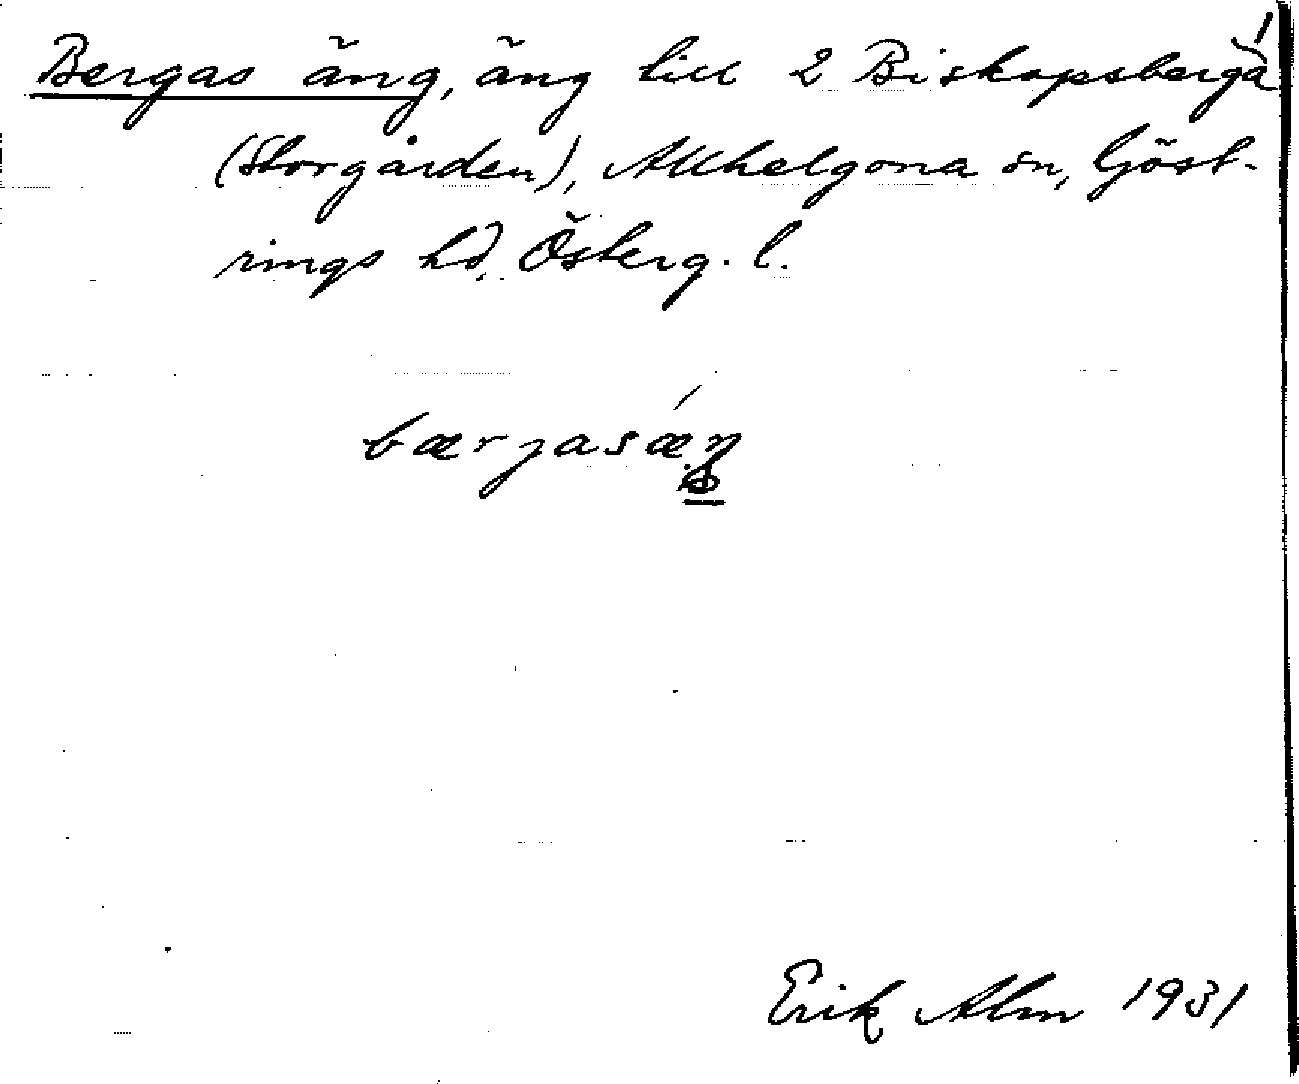 Bergas äng, äng till 2 Biskopsberga
(Storgården), Allhelgona sn, Göst-
rings hd, Österg. l.
bærjasæŋ
Erik Alm 1931